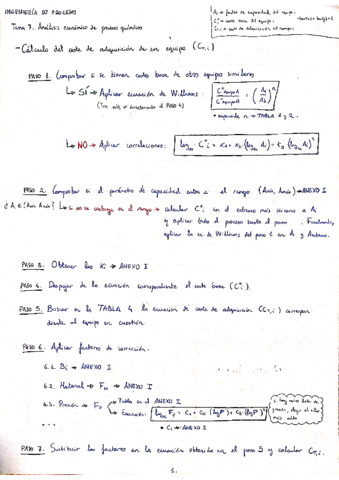 INGENIERÍA DE PROCESO
Tema 7. Análisis económico de procesos químicos
Ai → factor de capacidad del equipo.
C°i → coste base del equipo.
CT,i → coste de adquisición del equipo.
- Cálculo del coste de adquisición de un equipo (CT,i)
PASO 1. Comprobar si se tienen costes base de otros equipos similares
↳ SÍ → Aplicar ecuación de Williams: C°equipo A / C°equipo B = (A1/A2)^n
directamente al PASO 4)
* exponente n → TABLA 1 y 2.
↳ NO → Aplicar correlaciones: log10 C°i = K1 + K2·(log10 Ai) + K3 (log10 Ai)²
PASO 2. Comprobar si el parámetro de capacidad entra en el rango (Amín, Amáx) → ANEXO I
¿Ai ∈ (Amín, Amáx)? ↳ Si no se incluye en el rango → calcular C°i en el extremo más cercano a Ai
y aplicar todo el proceso hasta el paso . Finalmente,
aplicar la ec. de Williams del paso 1 en A y Aextremo.
PASO 3. Obtener los Ki → ANEXO I
PASO 4. Despejar de la ecuación correspondiente el coste base (C°i).
PASO 5. Buscar en la TABLA 4 la ecuación de coste de adquisición (CT,i) correspon-
diente al equipo en cuestión.
PASO 6. Aplicar factores de corrección.
6.1. Bi → ANEXO I
6.2. Material → FM → ANEXO I
6.3. Presión → FP → Tabla en el ANEXO I
↳ Ecuación: log10 FP = C1 + C2·(log P) + C3·(log P)²
* Ci → ANEXO I
...
PASO 7. Sustituir los factores en la ecuación obtenida en el paso 5 y calcular CT,i.
1.